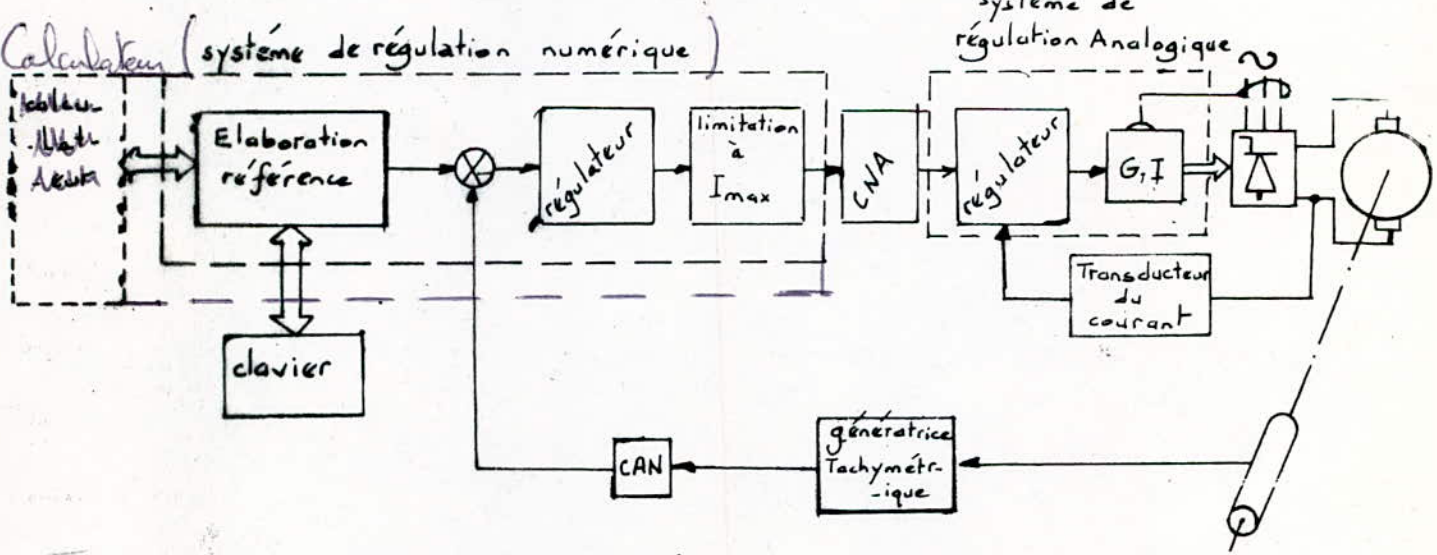 système de
Calculateur (système de régulation numérique)
régulation Analogique
Elaboration
référence
régulateur
limitation
à
Imax
CNA
régulateur
G,I
Transducteur
du
courant
clavier
CAN
génératrice
Tachymétr-
-ique